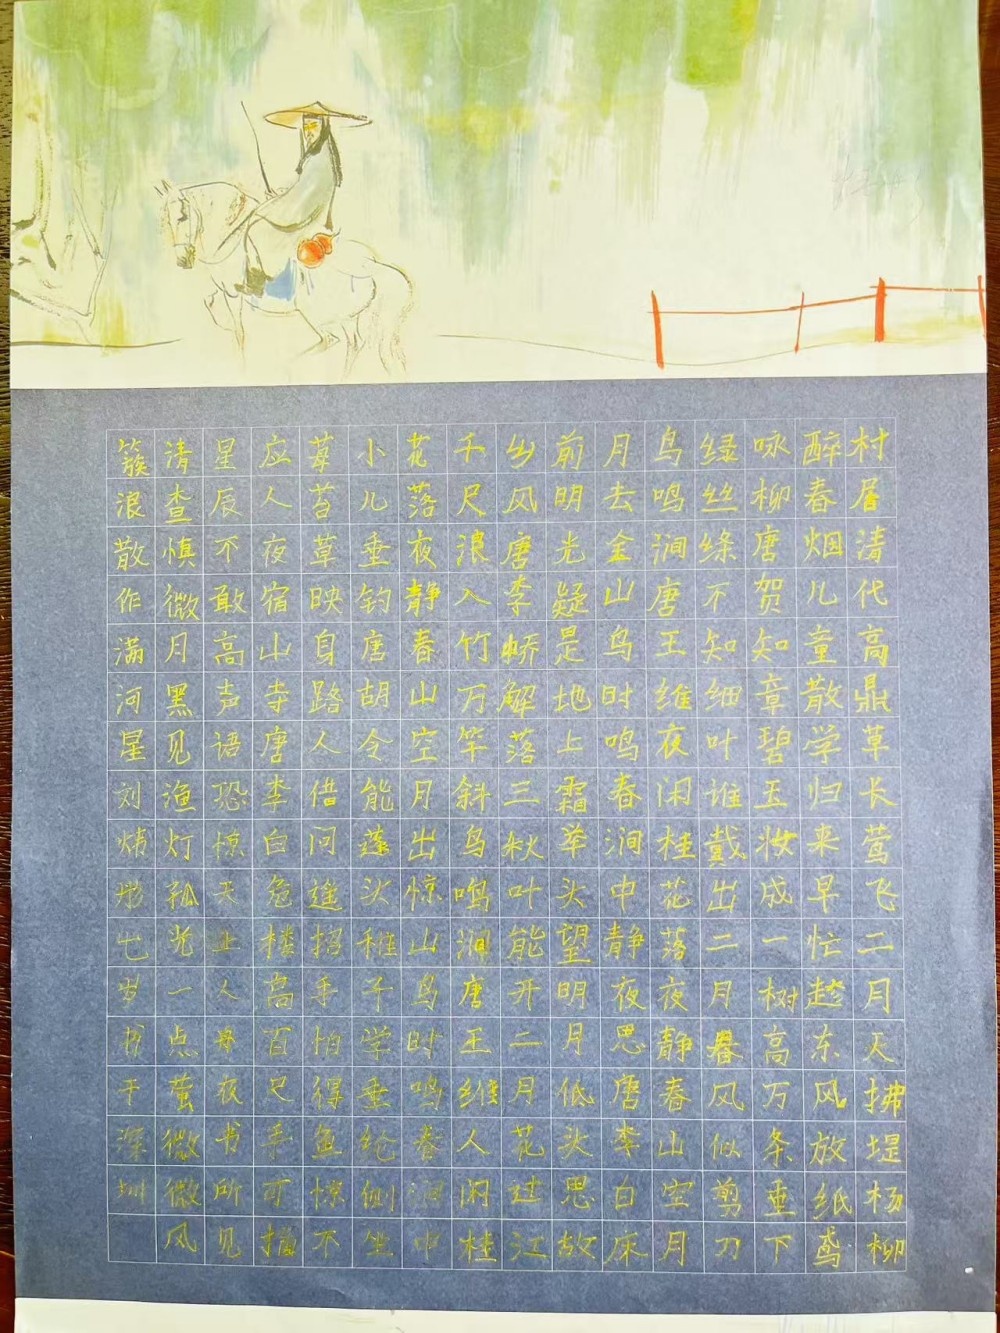 村居清代高鼎草长莺飞二月天拂堤杨柳
醉春烟儿童散学归来早忙趁东风放纸鸢
咏柳唐贺知章碧玉妆成一树高万条垂下
绿丝绦不知细叶谁戴出二月春风似剪刀
鸟鸣涧唐王维夜闲桂花落夜静春山空月
月去金山鸟时鸣春涧中静夜思唐李白床
前明光疑是地上霜举头望明月低头思故
乡风唐李峤解落三秋叶能开二月花过江
千尺浪入竹万竿斜鸟鸣涧唐王维人闲桂
花落夜静春山空月出惊山鸟时鸣春涧中
小儿垂钓唐胡令能蓬头稚子学垂纶侧坐
莓苔草映身路人借问遥招手怕得鱼惊不
应人夜宿山寺唐李白危楼高百尺手可摘
星辰不敢高声语恐惊天上人舟夜书所见
清查慎微月黑见渔灯孤光一点萤微微风
簇浪散作满河星刘婧彤七岁书于深圳